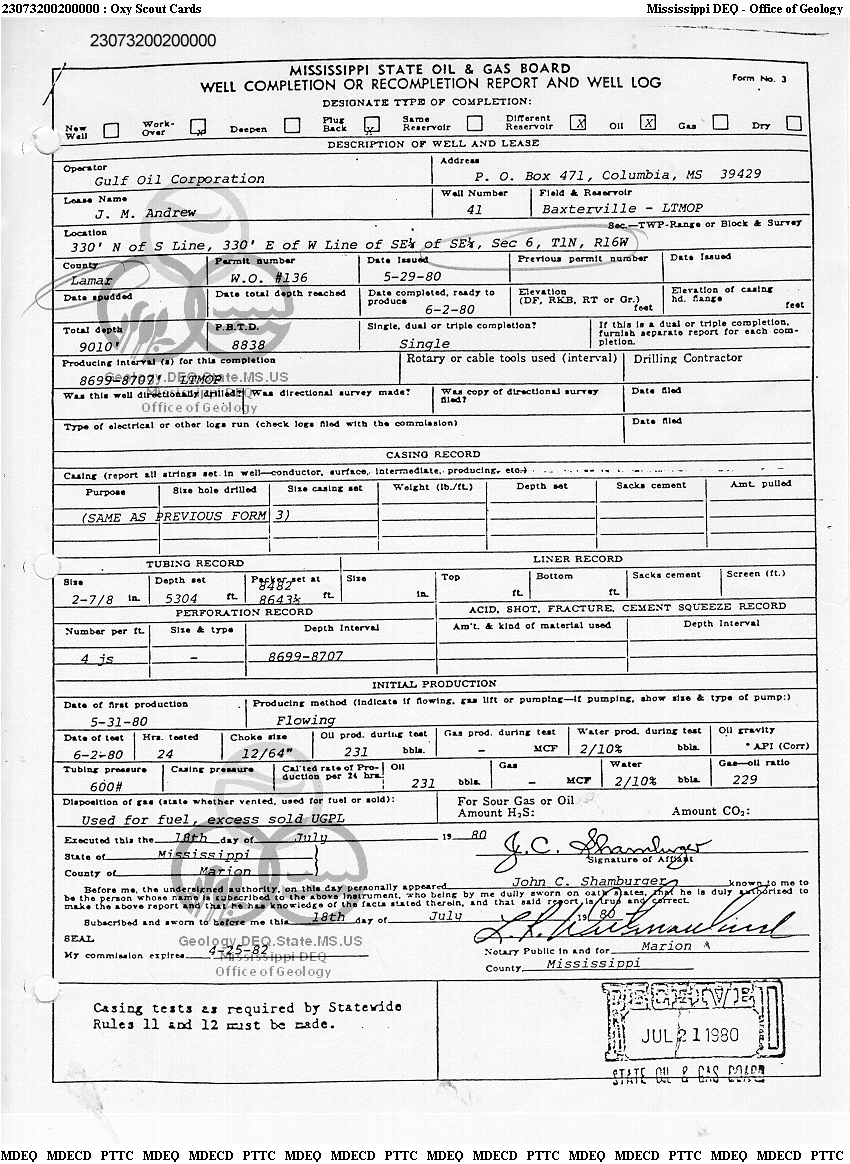 23073200200000 : Oxy Scout Cards Mississippi DEQ - Office of Geology
23073200200000
MISSISSIPPI STATE OIL & GAS BOARD
WELL COMPLETION OR RECOMPLETION REPORT AND WELL LOG Form No. 3
DESIGNATE TYPE OF COMPLETION:
New Well Work-Over X Deepen Plug Back X Same Reservoir Different Reservoir X Oil X Gas Dry
DESCRIPTION OF WELL AND LEASE
Operator Address
Gulf Oil Corporation P. O. Box 471, Columbia, MS 39429
Lease Name Well Number Field & Reservoir
J. M. Andrew 41 Baxterville - LTMOP
Location Sec.—TWP-Range or Block & Survey
330' N of S Line, 330' E of W Line of SE¼ of SE¼, Sec 6, T1N, R16W
County Permit number Date Issued Previous permit number Date Issued
Lamar W.O. #136 5-29-80
Date spudded Date total depth reached Date completed, ready to produce Elevation (DF, RKB, RT or Gr.) feet Elevation of casing hd. flange feet
6-2-80
Total depth P.B.T.D. Single, dual or triple completion? If this is a dual or triple completion, furnish separate report for each completion.
9010' 8838 Single
Producing interval (s) for this completion Rotary or cable tools used (interval) Drilling Contractor
8699-8707' LTMOP
Geology.DEQ.State.MS.US
Mississippi DEQ
Office of Geology
Was this well directionally drilled? Was directional survey made? Was copy of directional survey filed? Date filed
Type of electrical or other logs run (check logs filed with the commission) Date filed
CASING RECORD
Casing (report all strings set in well—conductor, surface, intermediate, producing, etc.)
Purpose Size hole drilled Size casing set Weight (lb./ft.) Depth set Sacks cement Amt. pulled
(SAME AS PREVIOUS FORM 3)
TUBING RECORD LINER RECORD
Size Depth set Packer set at Size Top Bottom Sacks cement Screen (ft.)
8482
2-7/8 in. 5304 ft. 8643½ ft. in. ft. ft.
PERFORATION RECORD ACID, SHOT, FRACTURE, CEMENT SQUEEZE RECORD
Number per ft. Size & type Depth Interval Am't. & kind of material used Depth Interval
4 js - 8699-8707
INITIAL PRODUCTION
Date of first production Producing method (indicate if flowing, gas lift or pumping—if pumping, show size & type of pump:)
5-31-80 Flowing
Date of test Hrs. tested Choke size Oil prod. during test Gas prod. during test Water prod. during test Oil gravity
6-2-80 24 12/64" 231 bbls. - MCF 2/10% bbls. ° API (Corr)
Tubing pressure Casing pressure Cal'ted rate of Production per 24 hrs. Oil Gas Water Gas—oil ratio
600# 231 bbls. - MCF 2/10% bbls. 229
Disposition of gas (state whether vented, used for fuel or sold): For Sour Gas or Oil
Amount H₂S: Amount CO₂:
Used for fuel, excess sold UGPL
Executed this the 18th day of July 19 80 J. C. Shamburger
State of Mississippi Signature of Affiant
County of Marion
Before me, the undersigned authority, on this day personally appeared John C. Shamburger known to me to
be the person whose name is subscribed to the above instrument, who being by me dully sworn on oath states, that he is duly authorized to
make the above report and that he has knowledge of the facts stated therein, and that said report is true and correct.
Subscribed and sworn to before me this 18th day of July 19 80
SEAL
Geology.DEQ.State.MS.US
My commission expires 4-25-82 Notary Public in and for Marion
Mississippi DEQ
County, Mississippi
Office of Geology
Casing tests as required by Statewide
Rules 11 and 12 must be made.
RECEIVED
JUL 21 1980
STATE OIL & GAS BOARD
MDEQ MDECD PTTC MDEQ MDECD PTTC MDEQ MDECD PTTC MDEQ MDECD PTTC MDEQ MDECD PTTC MDEQ MDECD PTTC